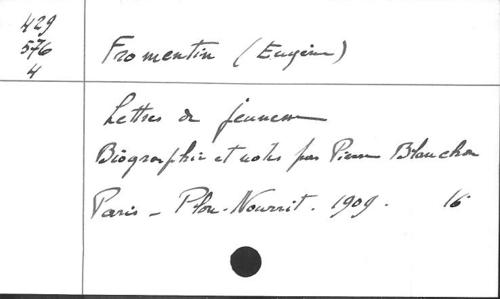 429
576
4
Fromentin (Eugène)
Lettres de jeunesse
Biographie et notes par Pierre Blanchon
Paris - Plon-Nourrit. 1909. 16